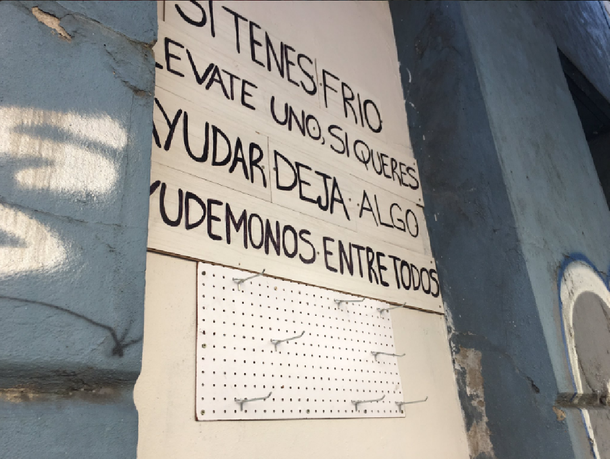 SI TENES FRIO
LEVATE UNO, SI QUERES
AYUDAR DEJA ALGO
YUDEMONOS ENTRE TODOS